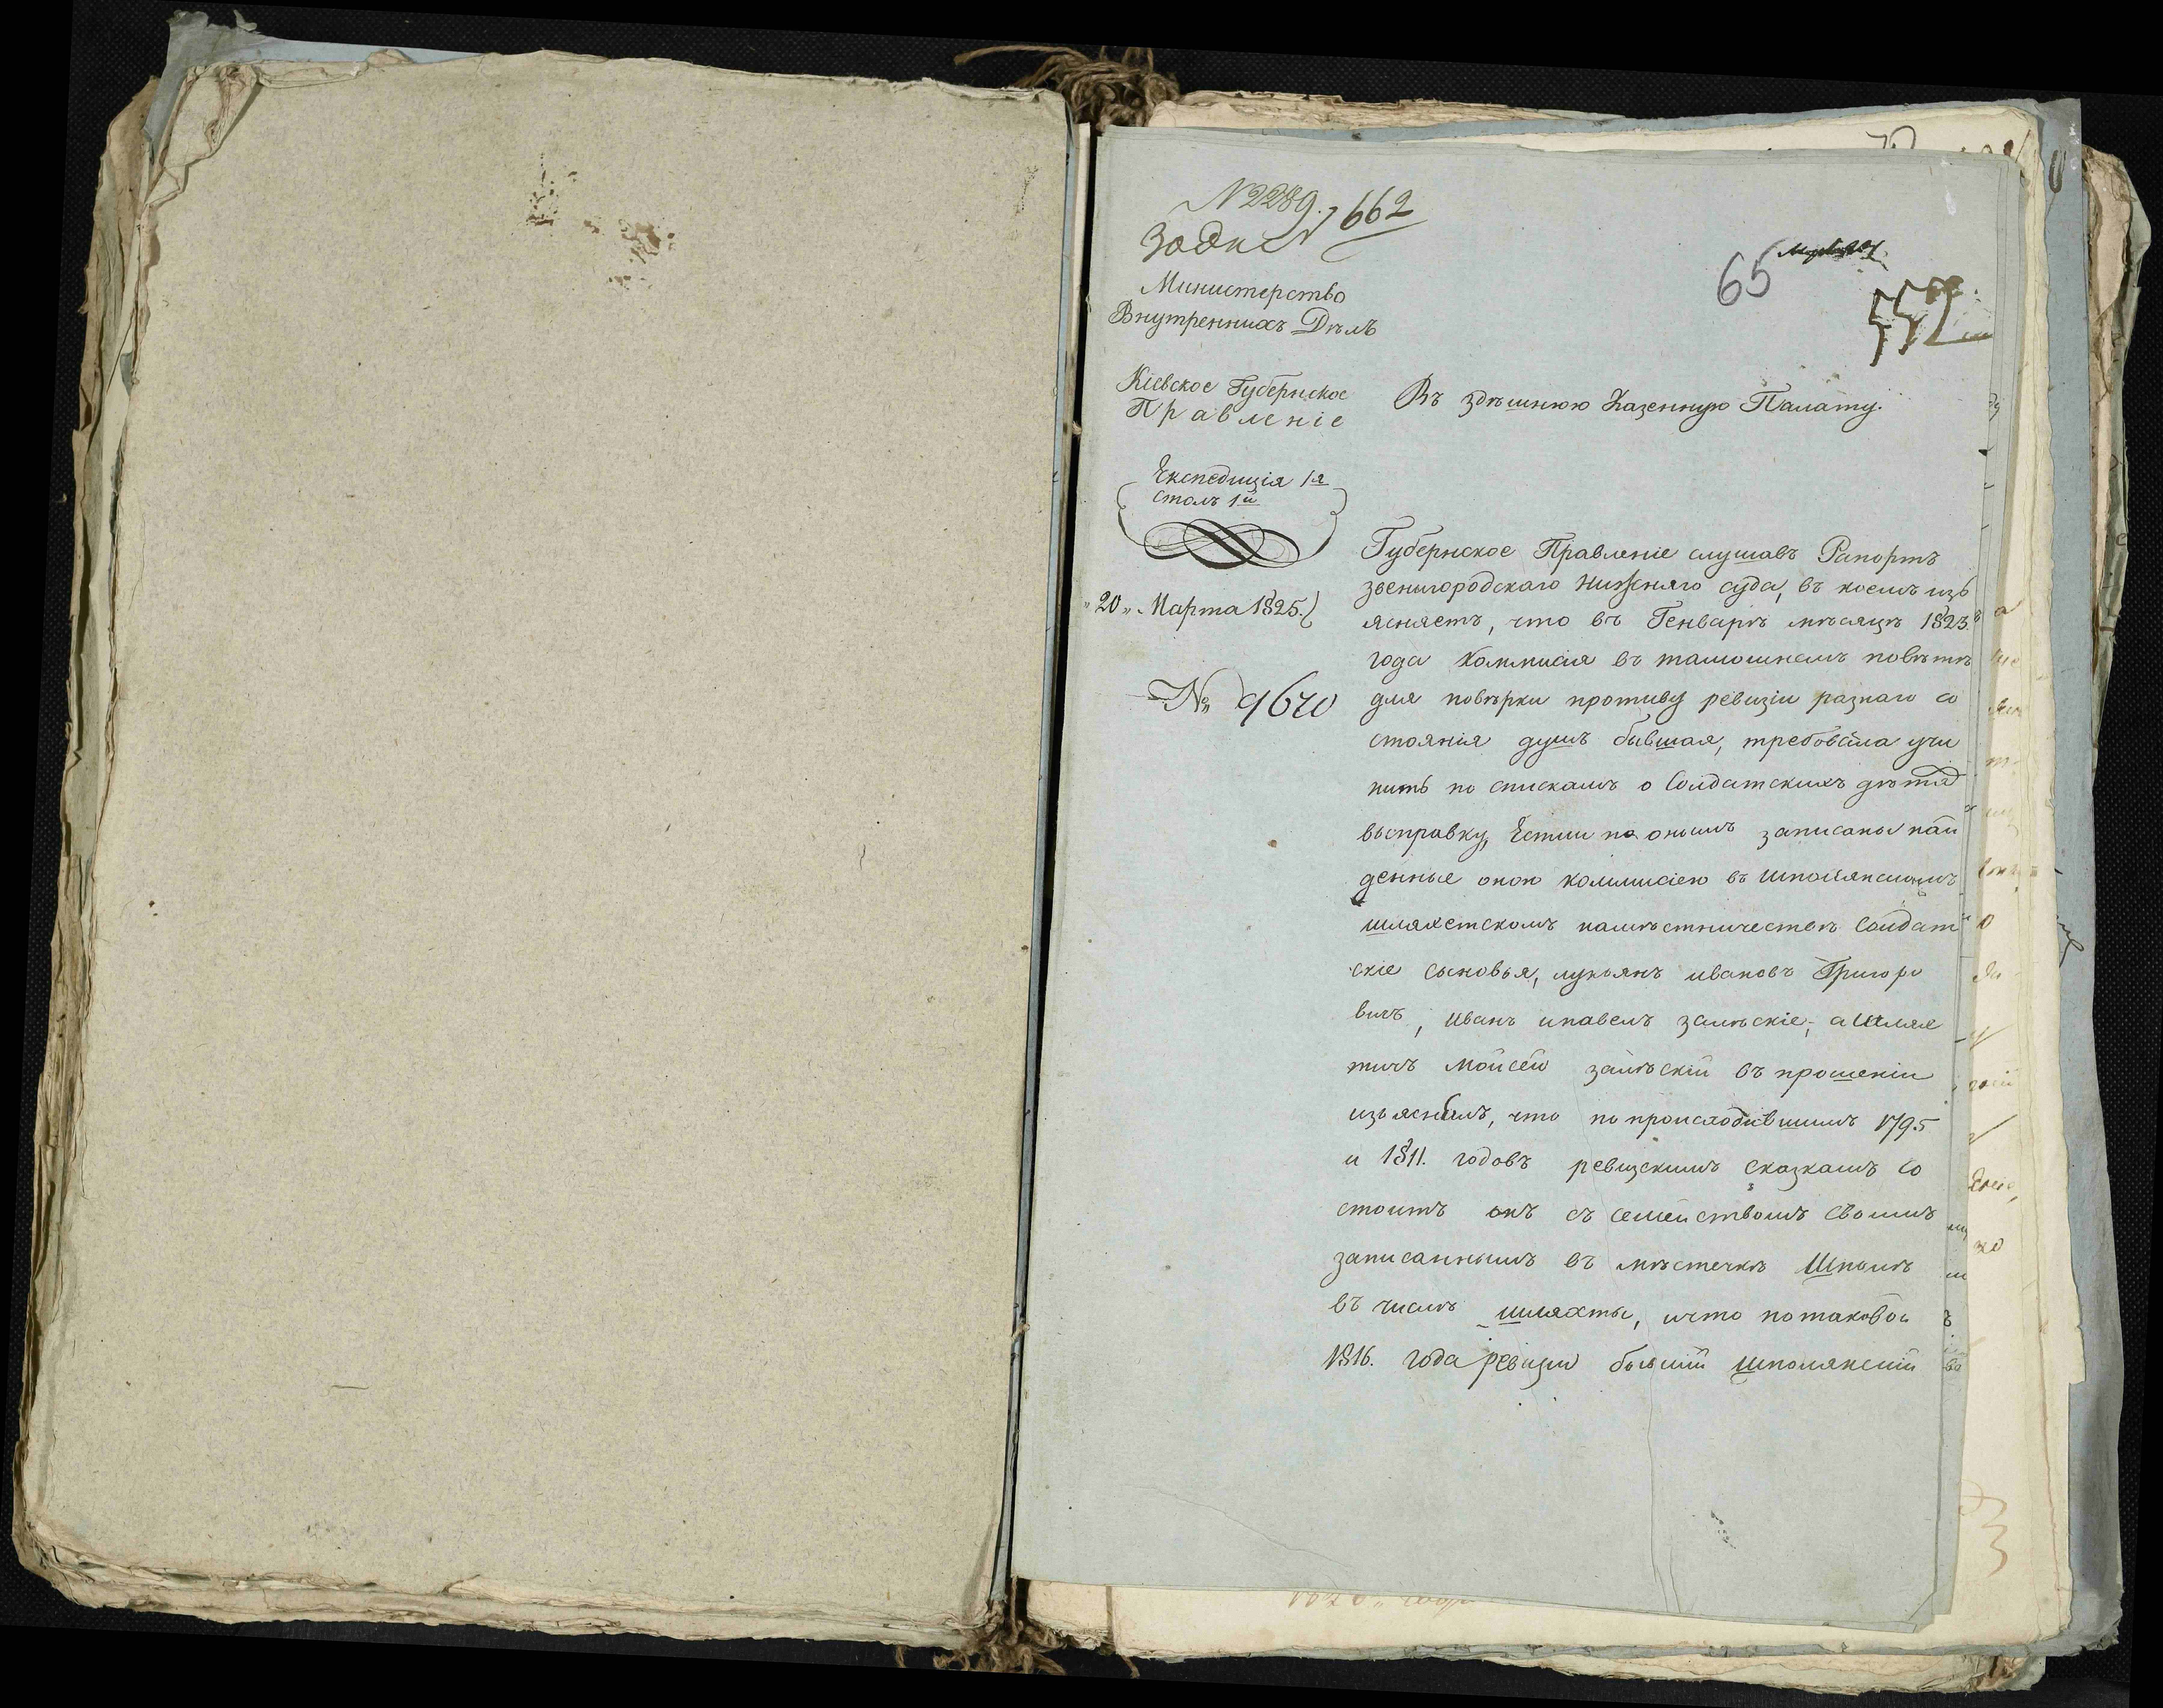 N 2289.
662
65
557
Министерство
Внутреннихъ Дѣлъ
Кіевское Губернское
Правленіе
Въ здѣшнюю Казенную Палату.
Експедиція 1я
столъ 1й
"20" Марта 1825.
№ 9670
Губернское Правленіе слушавъ Рапортъ
звенигородскаго нижняго суда, въ коемъ изъ
ясняетъ, что въ Генварѣ мѣсяцѣ 1823.
года коммисія въ тамошнемъ повѣтѣ
для повѣрки противу ревизіи разнаго со
стоянія душъ бывшая, требовала учи
нить по спискамъ о Солдатскихъ дѣтяхъ
выправку, Естли по онымъ записаны най
денные оною коммисіею въ шполянскомъ
шляхетскомъ намѣстничествѣ Солдат
скіе сыновья, лукьянъ ивановъ Григоро
вичъ, иванъ и павелъ залѣскіе, а шлях
тичъ Мойсей залѣскій въ прошеніи
изъяснилъ, что по происходившимъ 1795
и 1811. годовъ ревизскимъ сказкамъ со
стоитъ онъ съ семействомъ своимъ
записаннымъ въ мѣстечкѣ Шполѣ
въ числѣ шляхты, и что по таковой
1816. года ревизіи бывшій шполянскій